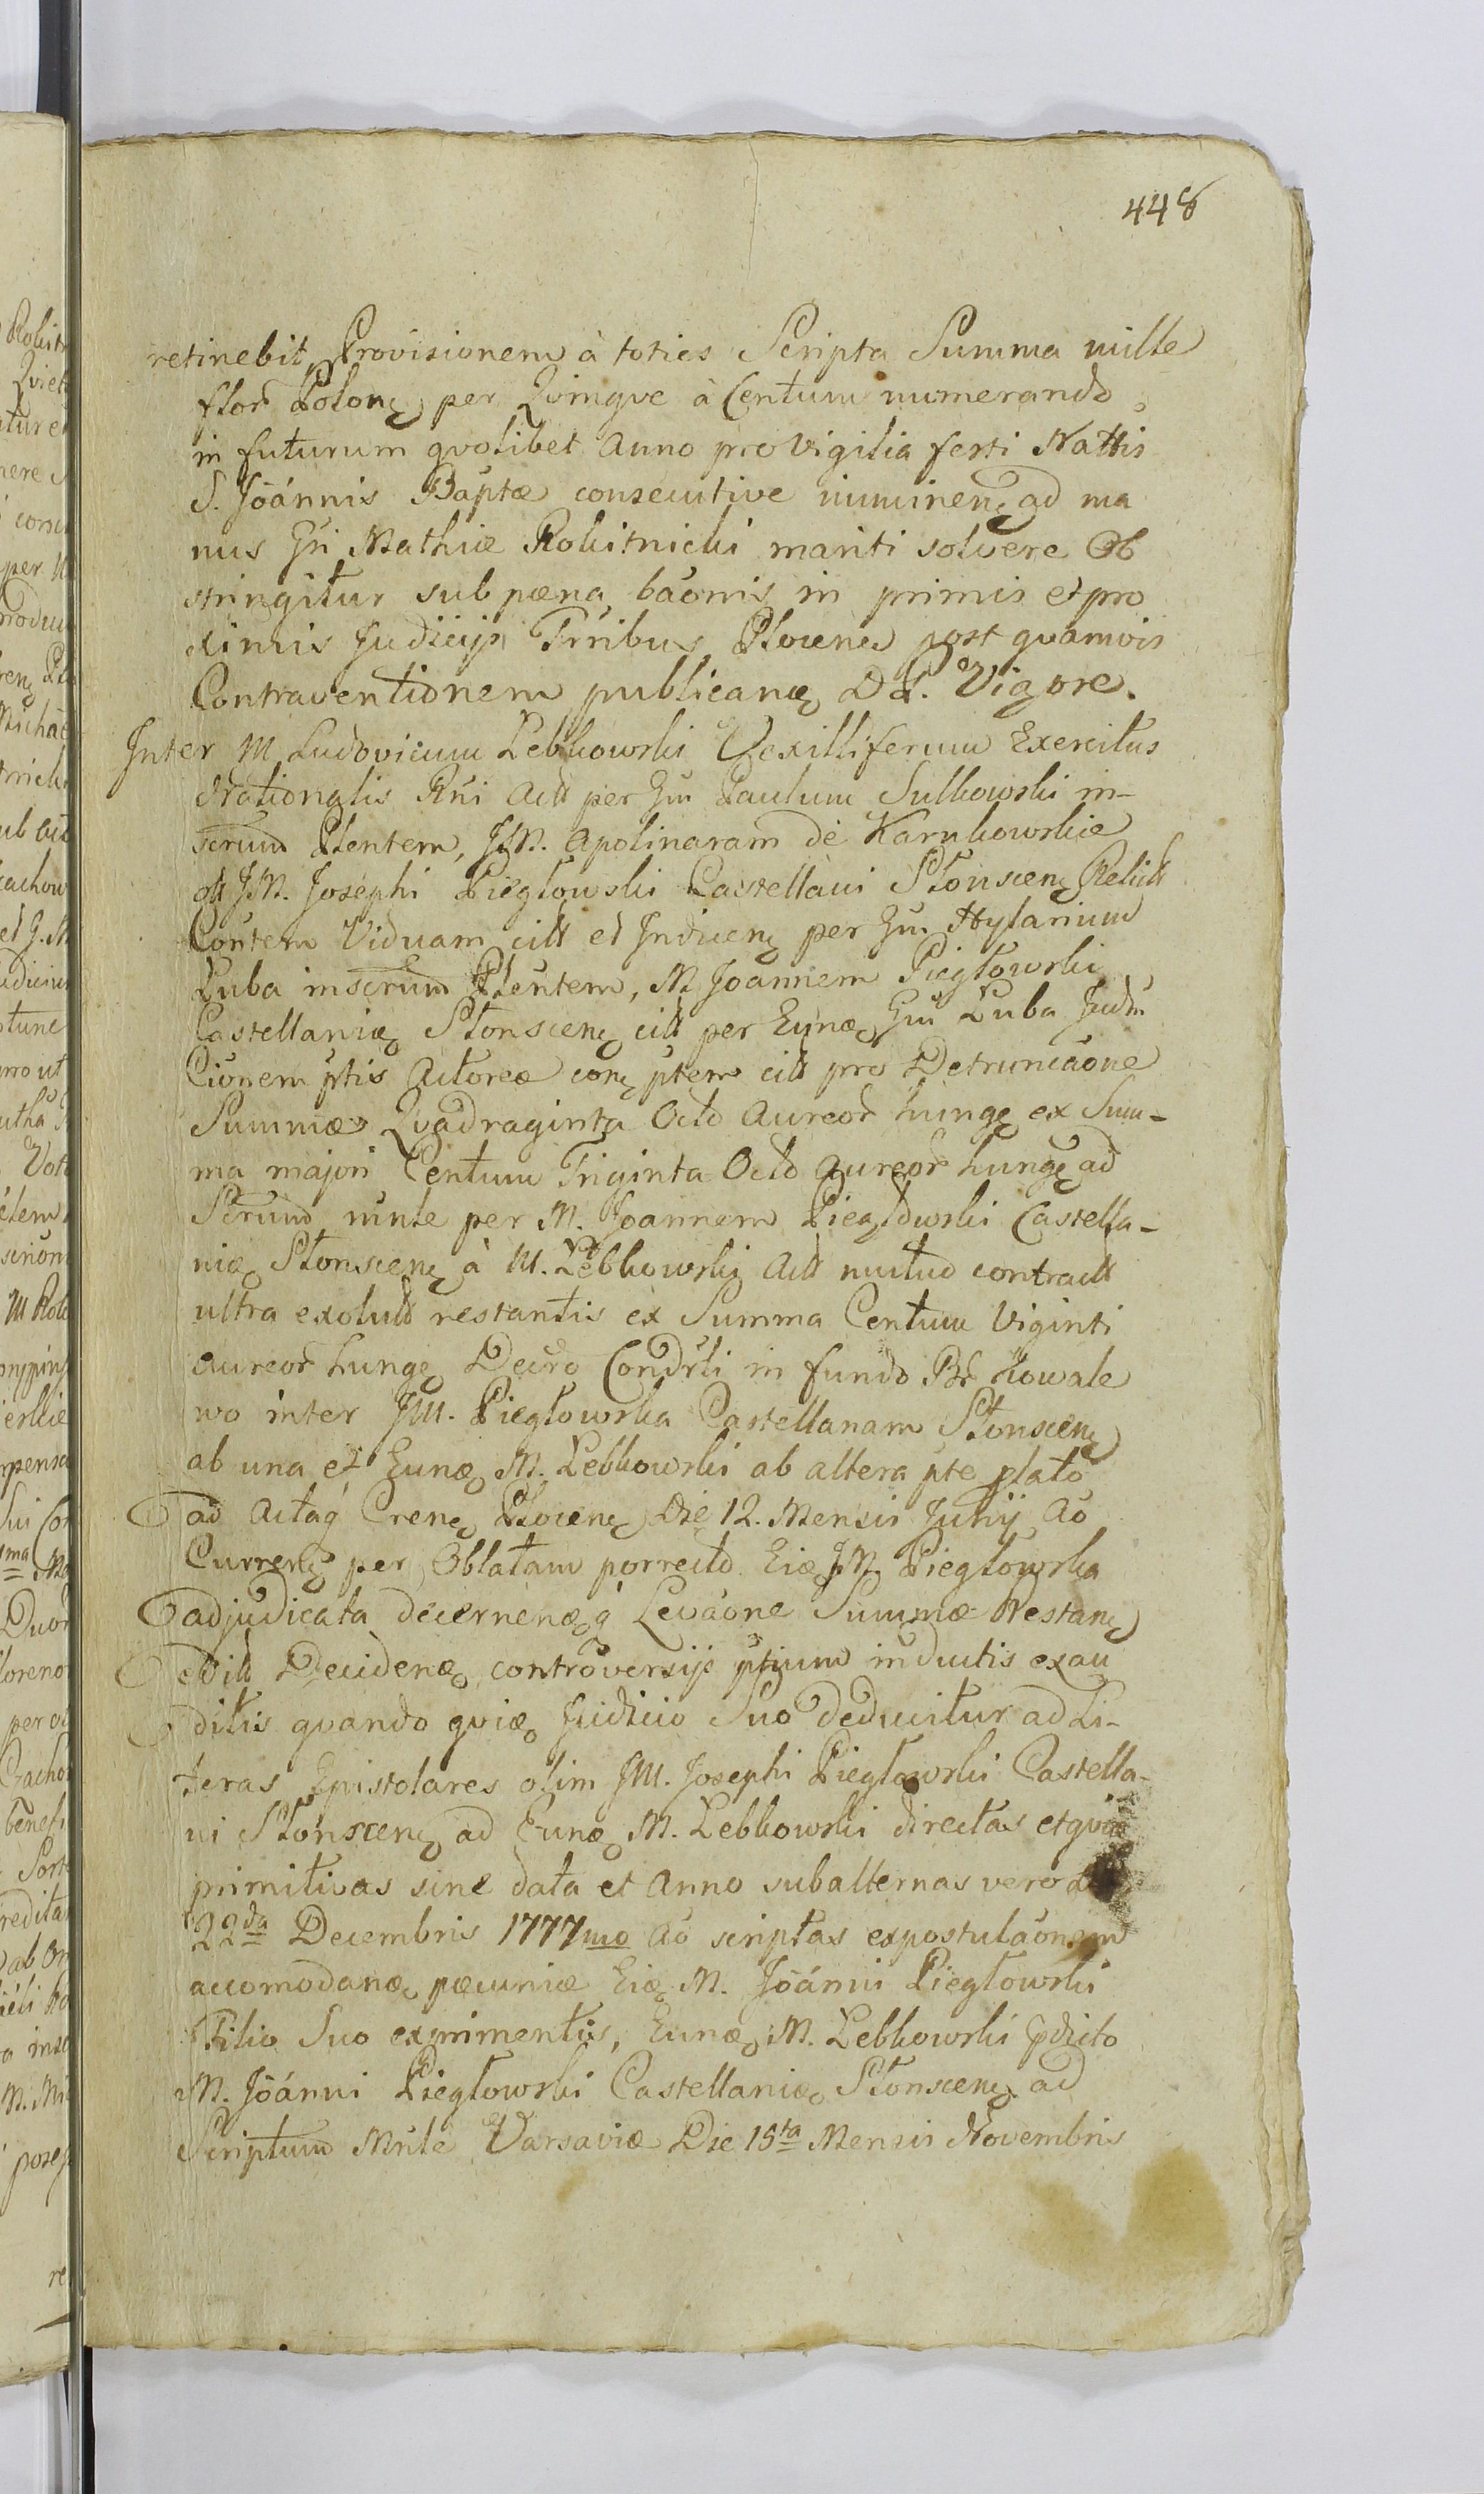 448
retinebit, Provisionem à toties Scripta Summa mille
flor Polonę per Qvinqve à Centum numerando
in futurum qvolibet Anno pro Vigilia festi Nattis
S. Joánnis Baptæ consecutive iminenę ad ma
nus Gñi Mathiæ Rokitnicki mariti solvere Ob
stringitur sub pœna baönis in primis et pro
ximis Judicijs Trribus Plocenę post qvamvis
Contraventionem publicanę Dd. Vigore.
Inter M Ludovicum Lebkowski Vexilliferum Exercitus
Nationalis Rñi Actt per Gñu Paulum Sulkowski in-
scrum Plentem, JM. Apolinaram de Karnkowskie
ott JM. Josephi Piegłowski Castellani Słonscenę Relictt
Coñtem Viduam citt et Inducenę per Gñu Hylarium
Luba inscrum Plentem, M Joannem Piegłowski
Castellanię Słonscenę citt per Eunę Gñu Luba Judm
Cionem ptis Actoreæ conę ptem citt pro Detruncaöne
Summæ Qvadraginta Octo Aureor hungę ex Sum-
ma majori Centum Triginta Octo Aureor hungę ad
Scrum mnle per M. Joannem Piegłowski Castella-
nię Słonscenę à M. Lebkowski Actt mutuo contractt
ultra exolutt restantis ex Summa Centum Viginti
Aureor hungę Decro Condrli in fundo Bł Kowale
wo inter JM. Piegłowska Castellanam Słonscenę
ab una et Eunę M. Lebkowski ab altera pte plato
ad Acta Crenę Plocenę Die 12. Mensis Junij Aö
Currenę per Oblatam porrecto Eię JM. Piegłowska
adjudicata decernenę Levaöne Summæ Restanę
Decidenę controversijs ptium inductis exau
ditis qvando qvię Judicio Suo deducitur ad Li-
teras Epistolares olim JM. Josephi Piegłowski Castella-
ni Słonscenę ad Eunę M. Lebkowski directas etqvię
primitivas sine data et Anno subalternas vero
22da Decembris 1777mo Aö scriptas expostulaönem
accomodanę pœcuniæ Eię M. Joánni Piegłowski
Filio Suo exprimentis, Eunę M. Lebkowski pdicto
M. Joánni Piegłowski Castellanię Słonscenę ad
Scriptum Mnle Varsaviæ Die 15ta Mensis Novembris